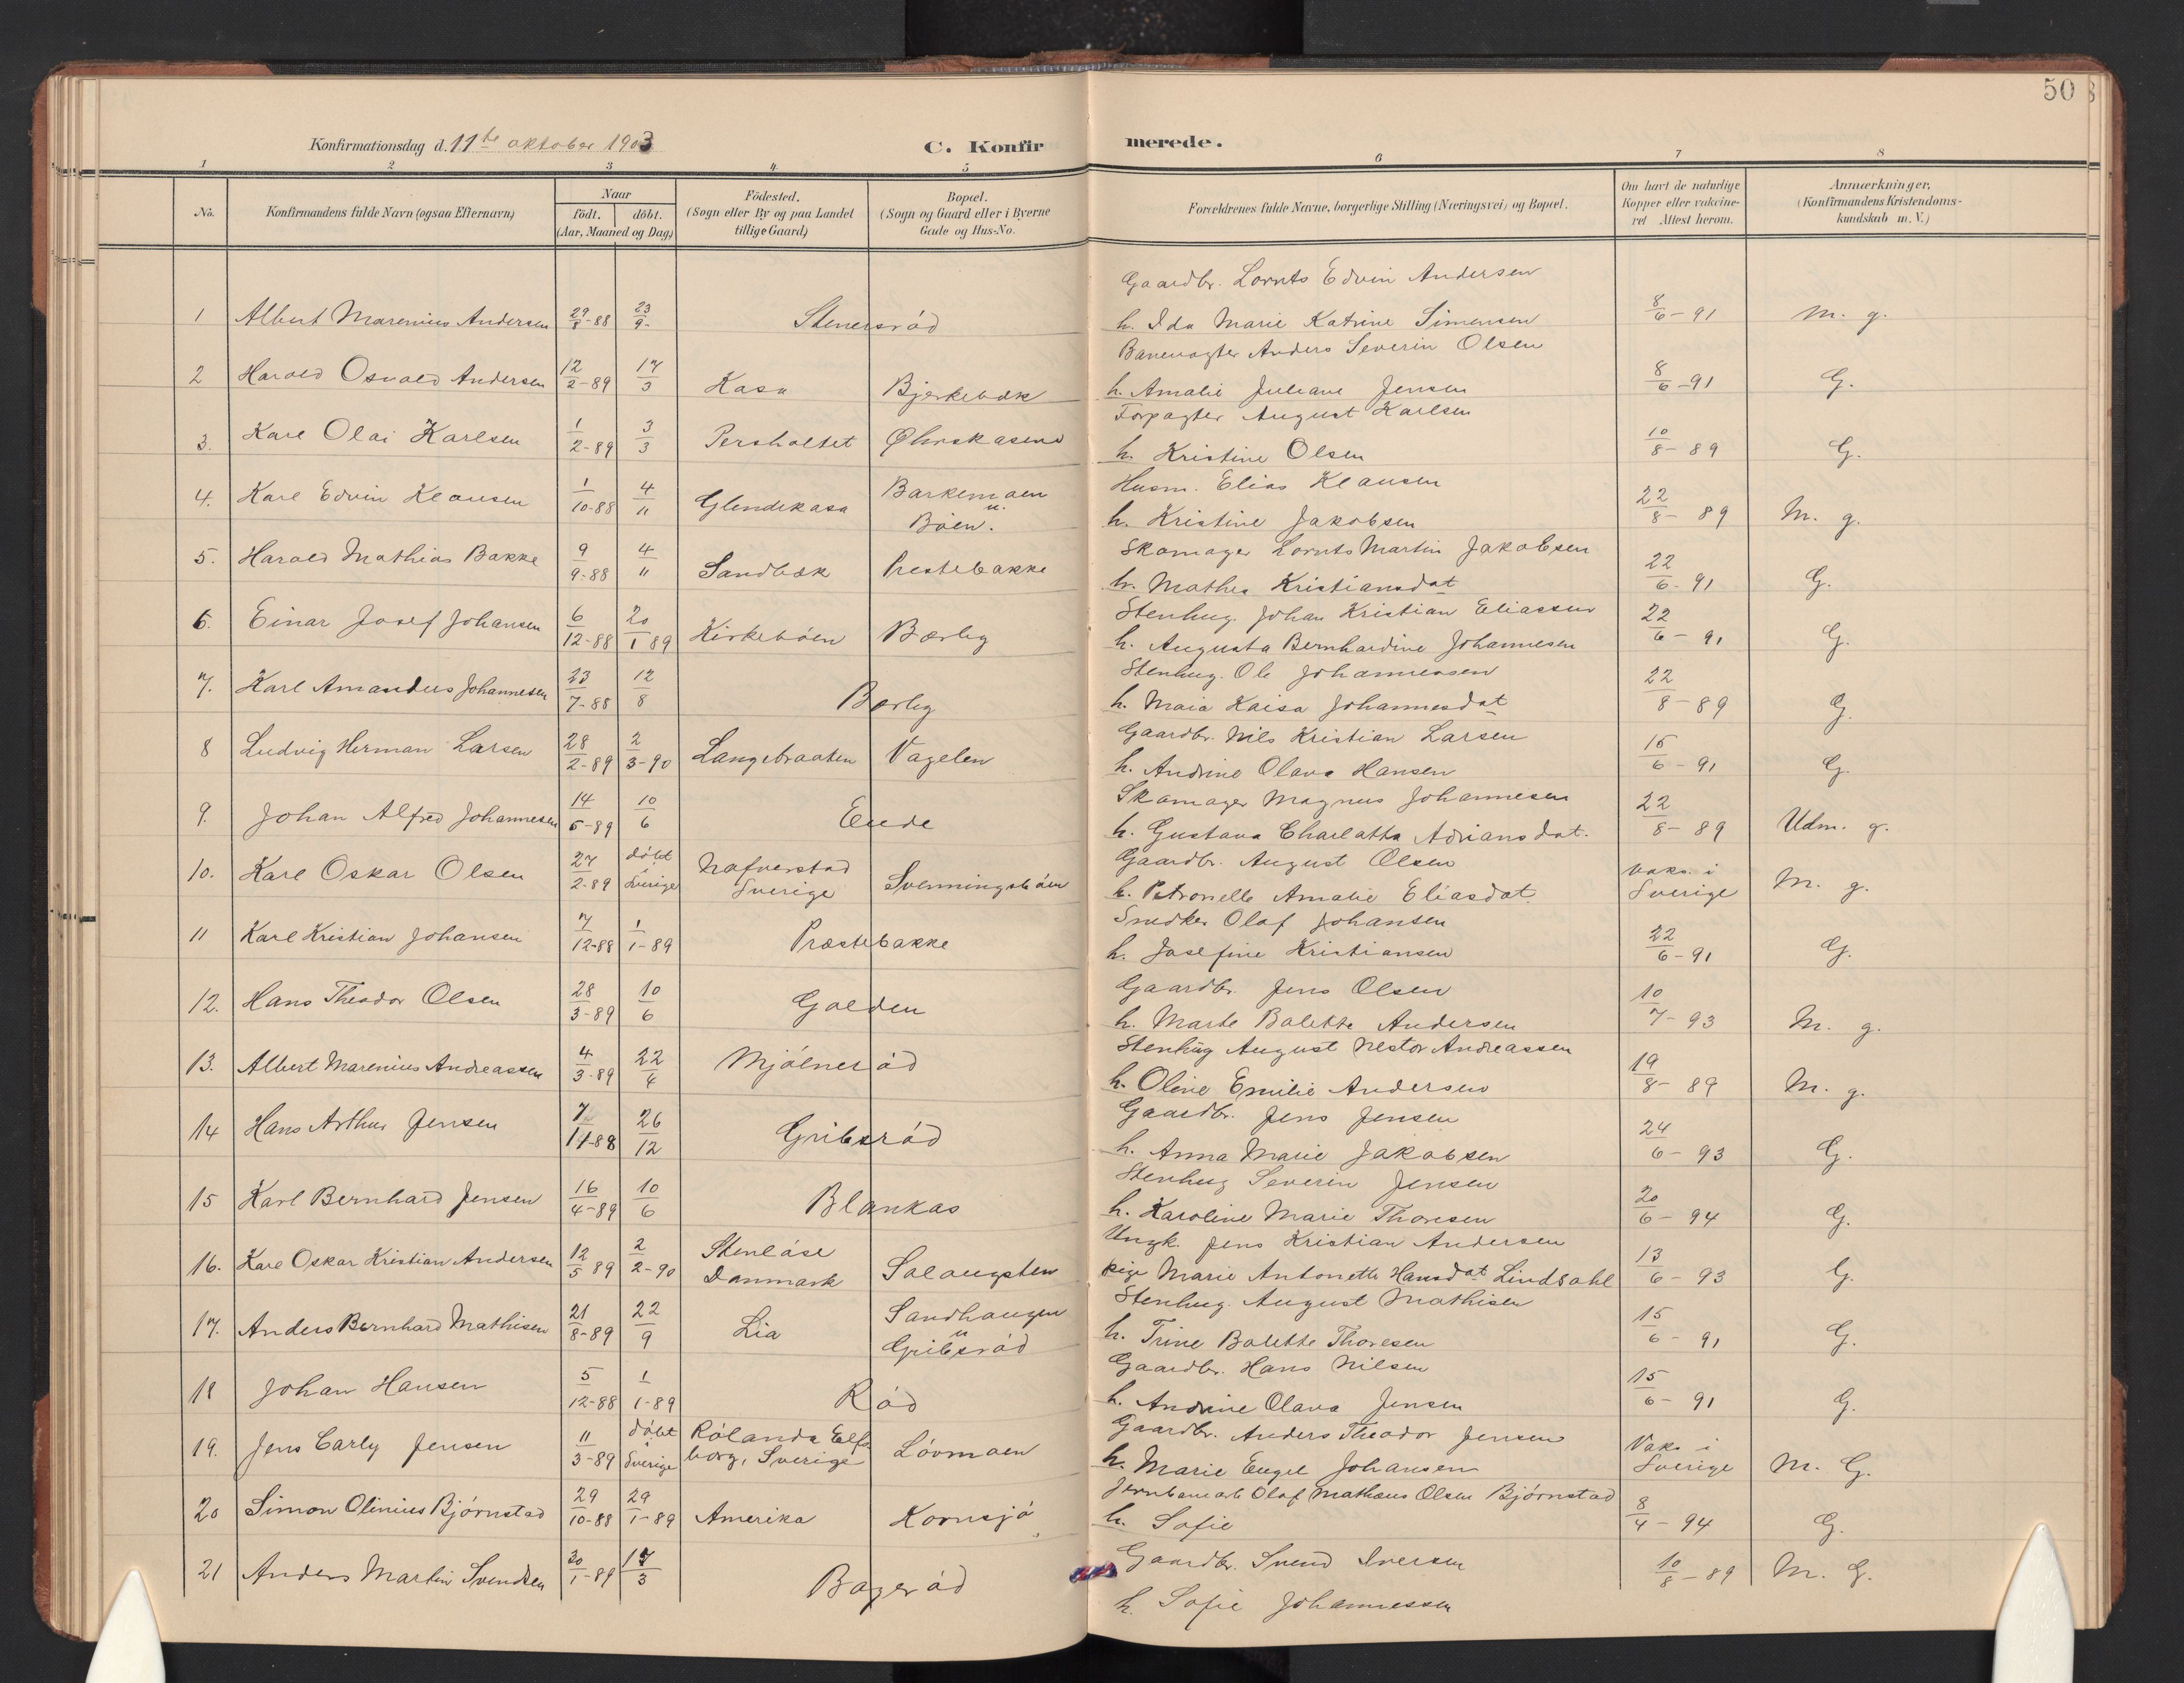 50
Konfirmationsdag d. 11te oktober 1903
C. Konfirmerede.
1 2 3 4 5 6 7 8
No.
Konfirmandens fulde Navn (ogsaa Efternavn)
Naar
födt. döbt.
(Aar, Maaned og Dag)
Födested.
(Sogn eller By og paa Landet
tillige Gaard)
Bopæl.
(Sogn og Gaard eller i Byerne
Gade og Hus-No.
Forældrenes fulde Navne, borgerlige Stilling (Næringsvei) og Bopæl.
Om havt de naturlige
Kopper eller vakcine-
ret Attest herom.
Anmærkninger,
(Konfirmandens Kristendoms-
kundskab m. V.)
Gaardbr. Lornts Edvin Andersen
1 Albert Marenius Andersen 29/8-88 23/9- Stenersröd h. Ida Marie Katrine Simensen 8/6-91 M. g.
Banevogter Anders Severin Olsen
2 Harald Osvald Andersen 12/2-89 17/3 Kasa Bjerkebæk h. Amalie Juliane Jensen 8/6-91 G.
Forpagter August Karlsen
3. Karl Olai Karlsen 1/2-89 3/3 Persholtet h. Kristine Olsen 10/8-89 G.
Husm. Elias Klausen
4. Karl Edvin Klausen 1/10-88 4/11 Glendekasa Barkemoen u. Böen. h. Kristine Jakobsen 22/8-89 M. g.
Skomager Lornts Martin Jakobsen
5. Harald Mathias Bakke 9/9-88 4/11 Sandbæk Prestebakke h. Mathea Kristiansdat 22/6-91 G.
Stenhug. Johan Kristian Eliassen
6. Einar Josef Johansen 6/12-88 20/1 89 Kirkeböen Bærby h. Augusta Bernhardine Johannesen 22/6-91 G.
Stenhug. Ole Johannessen
7. Karl Amandus Johannesen 23/7-88 12/8 Bærby h. Maia Kaisa Johannesdat 22/8-89 G.
Gaardbr. Nils Kristian Larsen
8 Ludvig Herman Larsen 28/2-89 2/3-90 Langebraaten Vagelen h. Andrine Olava Hansen 15/6-91 G.
Skomager Magnus Johannesen
9. Johan Alfred Johannesen 14/5-89 10/6 Ende h. Gustava Charlotta Adriansdat. 22/8-89 Udm. g.
Gaardbr. August Olsen
10. Karl Oskar Olsen 27/2-89 döbt i Sverige Nafverstad Sverige Svenningsböen h. Petronelle Amalie Eliasdat. Vaks. i Sverige M. g.
Snedker Olaf Johansen
11 Karl Kristian Johansen 7/12-88 1/1-89 Præstebakke h. Josefine Kristiansen 22/6-91 G.
Gaardbr. Jens Olsen
12. Hans Theodor Olsen 28/3-89 10/6 Golden h. Marte Bolette Andersen 10/7-93 M. g.
Stenhug August Nestor Andreassen
13. Albert Marenius Andreassen 4/3-89 22/4 Mjölneröd h. Oline Emilie Andersen 19/8-89 M. g.
Gaardbr. Jens Jensen
14 Hans Arthur Jensen 7/11-88 26/12 Gribsröd h. Anna Marie Jakobsen 24/6-93 G.
Stenhug Severin Jensen
15 Karl Bernhard Jensen 16/4-89 10/6 Blankas h. Karoline Marie Thoresen 20/6-94 G.
Ungk. Jens Kristian Andersen
16. Karl Oskar Kristian Andersen 12/5 89 2/2-90 Stenlöse Danmark Salaugsten pige Marie Antonette Hansdat Lindbahl 13/6-93 G.
Stenhug. August Mathisen
17. Anders Bernhard Mathisen 21/8-89 22/9 Lia Sandhaugen u Gribsröd h. Trine Bolette Thoresen 15/6-91 G.
Gaardbr. Hans Nilsen
18 Johan Hansen 5/12-88 1/1-89 Röd h. Andrine Olava Jensen 15/6-91 G.
Gaardbr. Anders Theodor Jensen
19. Jens Carly Jensen 11/3-89 döbt i Sverige Rölanda Elfsborg, Sverige Lövmoen h. Marie Engel Johansen Vaks i Sverige M. G.
Jernbanearb Olaf Mathæus Olsen Björnstad
20 Simon Olinius Björnstad 29/10-88 29/1-89 Amerika Kornsjö h. Sofie 8/4-94 G.
Gaardbr. Svend Iversen
21 Anders Martin Svendsen 30/1-89 17/3 Bageröd h. Sofie Johannessen 10/8-89 M. G.